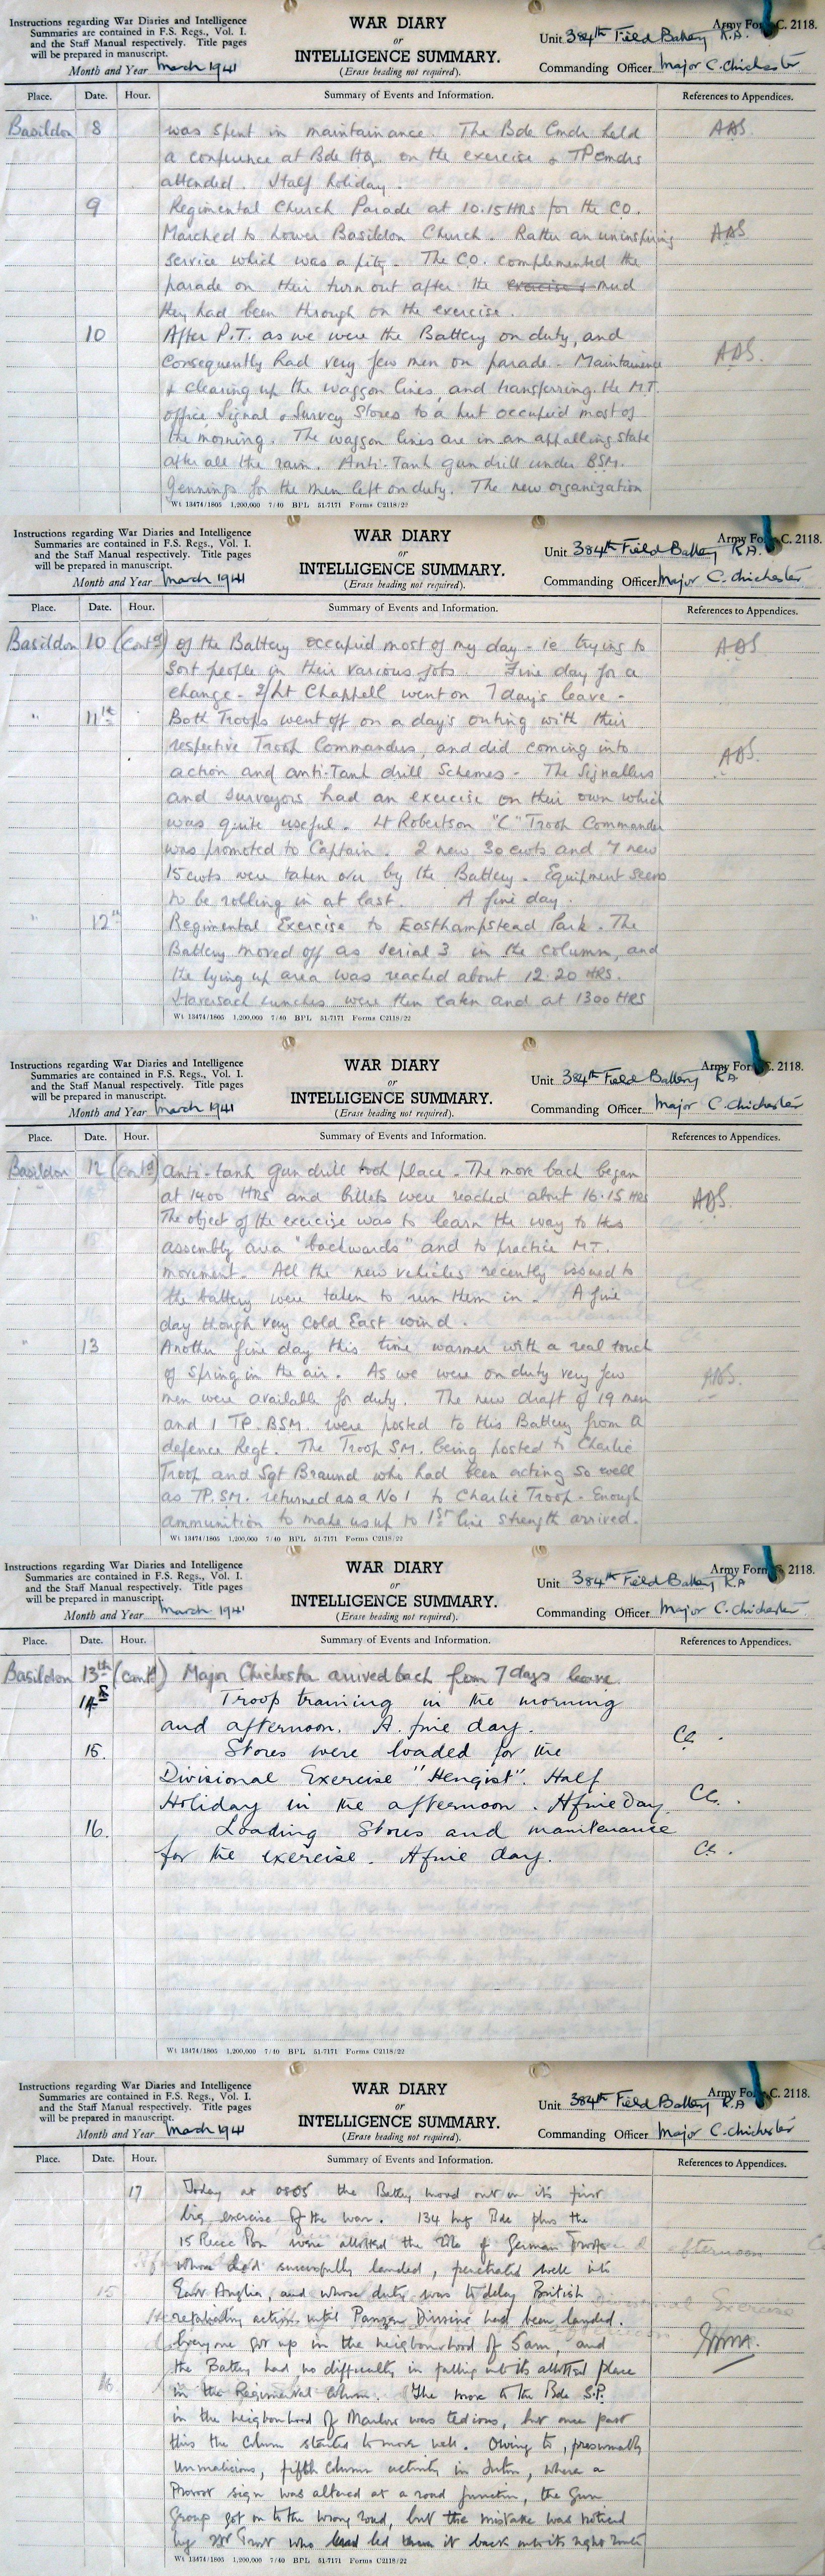 Instructions regarding War Diaries and Intelligence
Summaries are contained in F.S. Regs., Vol. I.
and the Staff Manual respectively. Title pages
will be prepared in manuscript.
Month and Year March 1941
WAR DIARY
or
INTELLIGENCE SUMMARY.
(Erase heading not required).
Army Form C. 2118.
Unit 384th Field Battery R.A.
Commanding Officer Major C. Chichester
Place. Date. Hour. Summary of Events and Information. References to Appendices.
Basildon 8 was spent in maintainance. The Bde Cmdr held AAS
a conference at Bde HQ. on the exercise & TP cmdrs
attended. Half holiday.
9 Regimental Church Parade at 10.15 HRS for the CO.
Marched to Lower Basildon Church. Rather an uninspiring AAS
service which was a pity. The C.O. complemented the
parade on their turn out after the exercise & mud
they had been through on the exercise.
10 After P.T. as we were the Battery on duty, and
consequently had very few men on parade. Maintainence AAS.
& clearing up the waggon lines, and transferring the M.T.
office, Signal & Survey Stores to a hut occupied most of
the morning. The waggon lines are in an appalling state
after all the rain. Anti-Tank gun drill under BSM.
Jennings for the men left on duty. The new organization
Wt 13474/1805 1,200,000 7/40 BPL 51-7171 Forms C2118/22
Instructions regarding War Diaries and Intelligence
Summaries are contained in F.S. Regs., Vol. I.
and the Staff Manual respectively. Title pages
will be prepared in manuscript.
Month and Year March 1941
WAR DIARY
or
INTELLIGENCE SUMMARY.
(Erase heading not required).
Army Form C. 2118.
Unit 384th Field Battery R.A.
Commanding Officer Major C. Chichester
Place. Date. Hour. Summary of Events and Information. References to Appendices.
Basildon 10 (Contd) of the Battery occupied most of my day - ie trying to AAS
sort people in their various jobs. Fine day for a
change. 2/Lt Chappell went on 7 day's leave -
" 11th Both Troops went off on a day's outing with their
respective Troop Commanders, and did coming into AAS.
action and anti-Tank drill schemes - The Signallers
and surveyors had an exercise on their own which
was quite useful. Lt Robertson "C" Troop Commander
was promoted to Captain. 2 new 30 cwts and 7 new
15 cwts were taken over by the Battery. Equipment seems
to be rolling in at last. A fine day.
" 12th Regimental Exercise to Easthampstead Park. The
Battery moved off as serial 3 in the column, and
the lying up area was reached about 12.20 HRS.
Haversack lunches were then eaten and at 1300 HRS
Wt 13474/1805 1,200,000 7/40 BPL 51-7171 Forms C2118/22
Instructions regarding War Diaries and Intelligence
Summaries are contained in F.S. Regs., Vol. I.
and the Staff Manual respectively. Title pages
will be prepared in manuscript.
Month and Year March 1941
WAR DIARY
or
INTELLIGENCE SUMMARY.
(Erase heading not required).
Army Form C. 2118.
Unit 384th Field Battery R.A
Commanding Officer Major C. Chichester
Place. Date. Hour. Summary of Events and Information. References to Appendices.
Basildon 12 (contd) anti-tank gun drill took place. The move back began
at 1400 HRS and billets were reached about 16.15 HRS AAS.
The object of the exercise was to learn the way to this
assembly area "backwards" and to practice M.T.
movement. All the new vehicles recently issued to
the battery were taken to run them in. A fine
day though very cold East wind.
" 13 Another fine day this time warmer with a real touch
of spring in the air. As we were on duty very few AAS.
men were available for duty. The new draft of 19 men
and 1 TP. BSM were posted to this Battery from a
defence Regt. The Troop S.M. being posted to Charlie
Troop and Sgt Braund who had been acting so well
as TP. SM. returned as a No 1 to Charlie Troop. Enough
ammunition to make us up to 1st line strength arrived.
Wt 13474/1805 1,200,000 7/40 BPL 51-7171 Forms C2118/22
Instructions regarding War Diaries and Intelligence
Summaries are contained in F.S. Regs., Vol. I.
and the Staff Manual respectively. Title pages
will be prepared in manuscript.
Month and Year March 1941
WAR DIARY
or
INTELLIGENCE SUMMARY.
(Erase heading not required).
Army Form C. 2118.
Unit 384th Field Battery R.A
Commanding Officer Major C. Chichester
Place. Date. Hour. Summary of Events and Information. References to Appendices.
Basildon 13th (contd) Major Chichester arrived back from 7 days leave.
14 Troop training in the morning
and afternoon. A fine day. CC.
15. Stores were loaded for the
Divisional Exercise "Hengist". Half
Holiday in the afternoon. A fine Day. CC.
16. Loading Stores and maintenance
for the exercise. A fine day. CC.
Wt 13474/1805 1,200,000 7/40 BPL 51-7171 Forms C2118/22
Instructions regarding War Diaries and Intelligence
Summaries are contained in F.S. Regs., Vol. I.
and the Staff Manual respectively. Title pages
will be prepared in manuscript.
Month and Year March 1941
WAR DIARY
or
INTELLIGENCE SUMMARY.
(Erase heading not required).
Army Form C. 2118.
Unit 384th Field Battery R.A
Commanding Officer Major C. Chichester
Place. Date. Hour. Summary of Events and Information. References to Appendices.
17 Today at 0805 the Battery moved out on its first
big exercise of the war. 134 Inf Bde plus the
15 Recce Bn were allotted the role of German Troops
whose had successfully landed, penetrated well into
East Anglia, and whose duty was to delay British
retaliatory action until Panzer Divisions had been landed.
Everyone got up in the neighbourhood of 5am, and
the Battery had no difficulty in falling into its allotted place
in the Regimental column. The move to the Bde S.P.
in the neighbourhood of Marlow was tedious, but once past
this the column started to move well. Owing to, presumably
unmalicious, fifth column activity in Luton, where a
Provost sign was altered at a road junction, the Gun
Group got on to the wrong road, but the mistake was noticed
by who had led them it back onto its right route
Wt 13474/1805 1,200,000 7/40 BPL 51-7171 Forms C2118/22